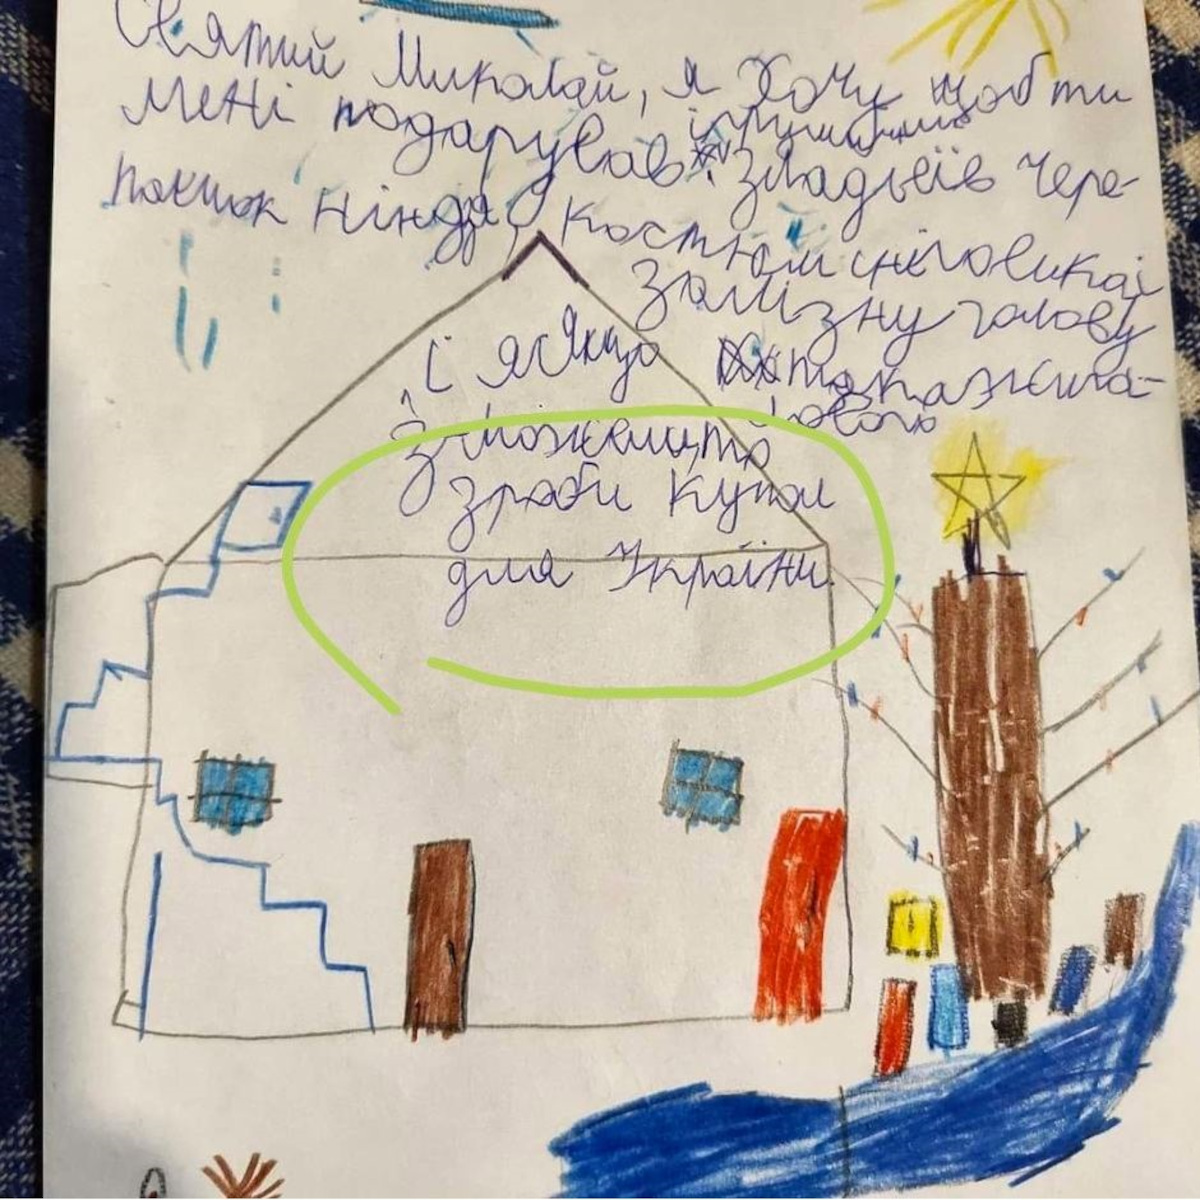 Святий Миколай, я хочу щоб ти
мені подарував іграшки
зладьеїв Чере-
пашок ніндзя, костюм сніговика і
залізну голову
і Якщо
кажана-
ового
зможеш, то
зроби купол
для України.